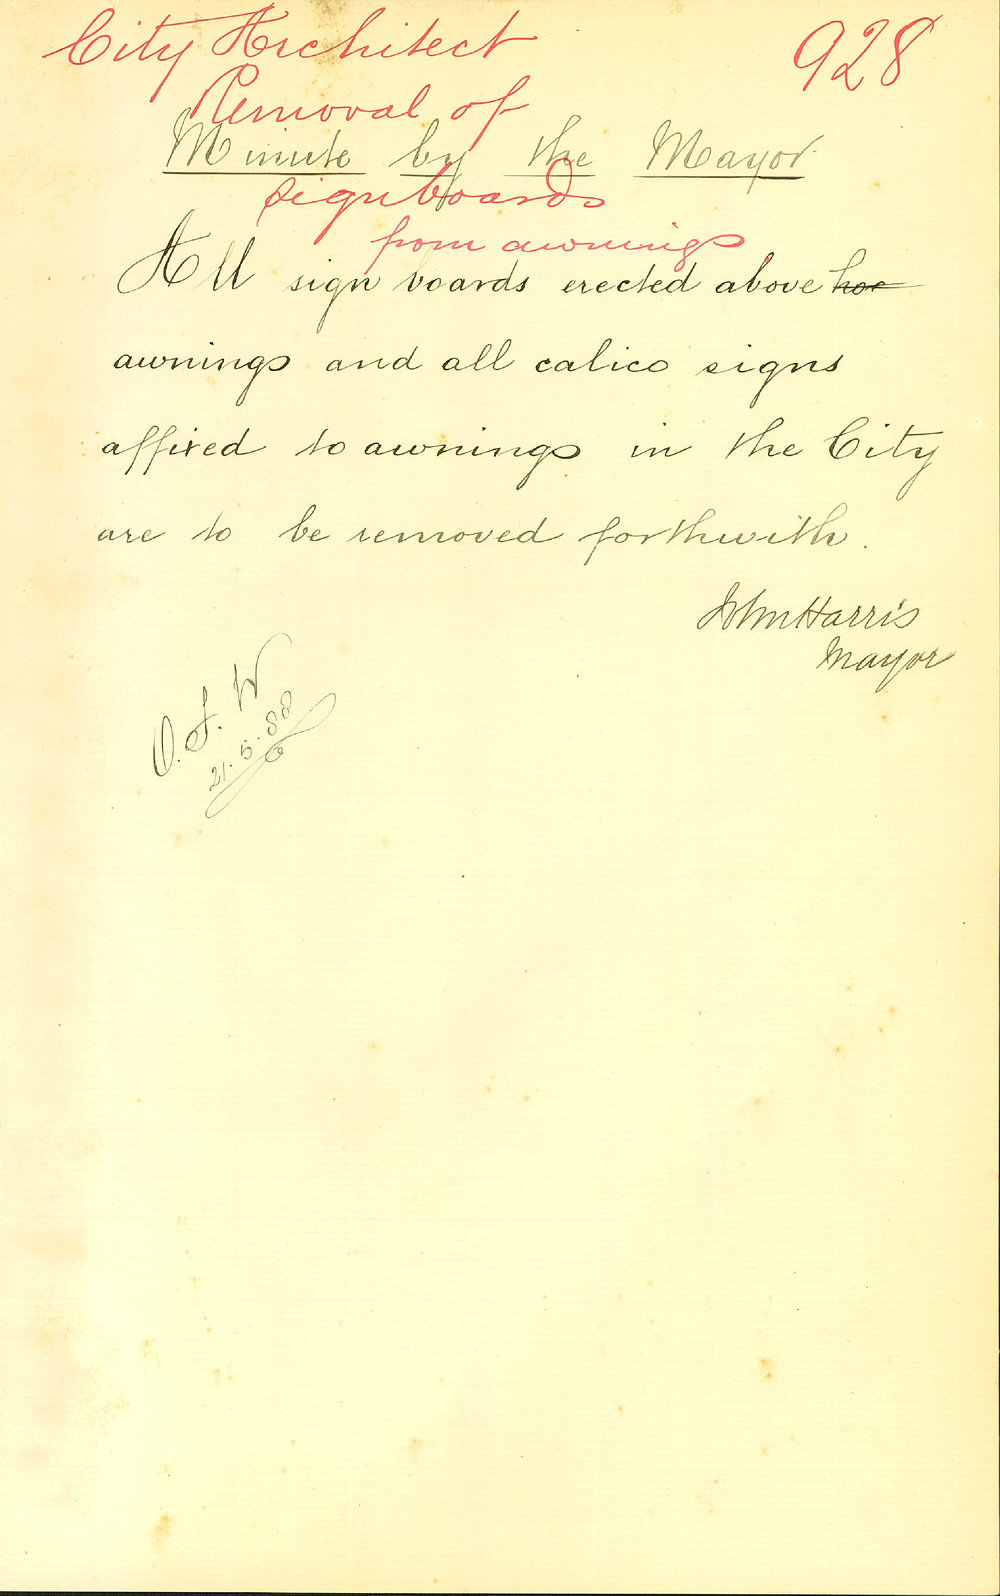 City Architect 928
Removal of
Minute by the Mayor
signboards
from awnings
All sign boards erected above
awnings and all calico signs
affixed to awnings in the City
are to be removed forthwith.
John Harris
Mayor
21.5.88